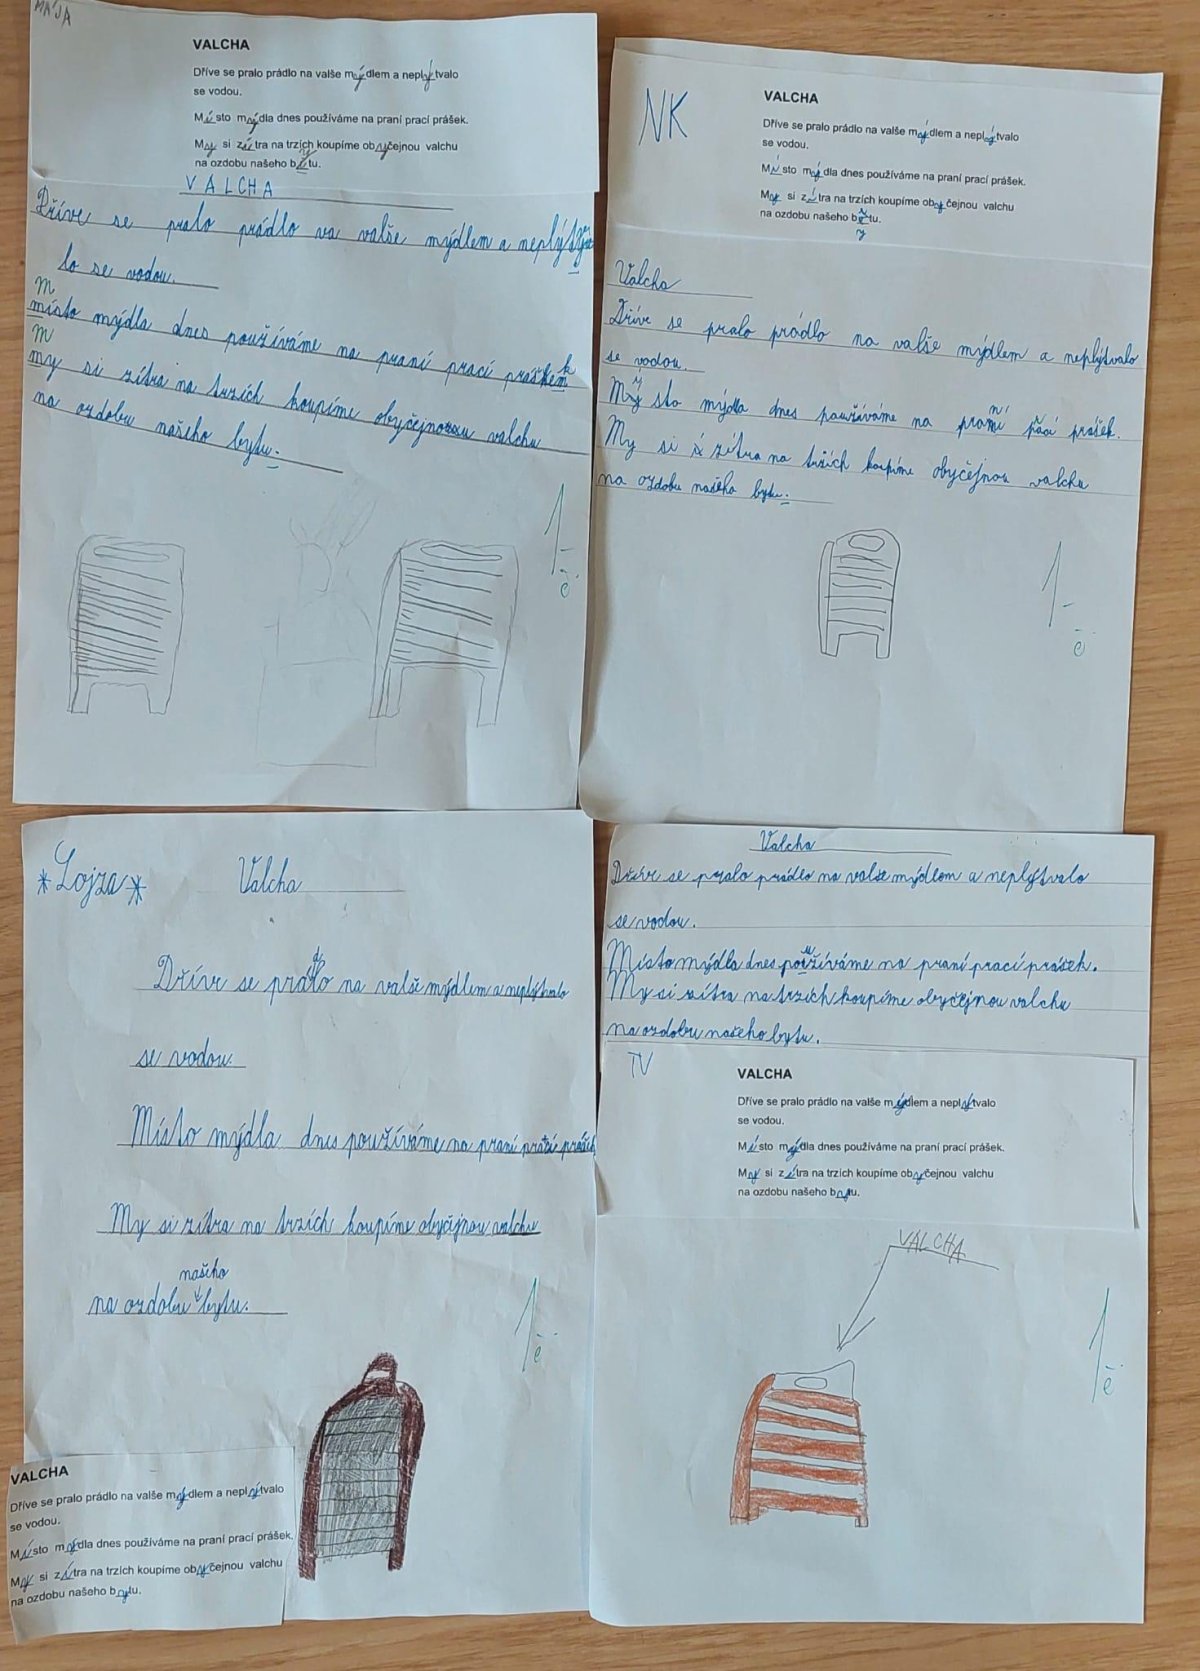 MÁJA
VALCHA
Dříve se pralo prádlo na valše mýdlem a neplýtvalo
se vodou.
Místo mýdla dnes používáme na praní prací prášek.
My si zítra na trzích koupíme obyčejnou valchu
na ozdobu našeho bytu.
VALCHA
Dříve se pralo prádlo na valše mýdlem a neplýtva
lo se vodou.
M
místo mýdla dnes používáme na praní prací práškem
M
my si zítra na trzích koupíme obyčejnou valchu
na ozdobu našeho bytu.
1-
č
NK
VALCHA
Dříve se pralo prádlo na valše mýdlem a neplýtvalo
se vodou.
Místo mýdla dnes používáme na praní prací prášek.
My si zítra na trzích koupíme obyčejnou valchu
na ozdobu našeho bytu.
Valcha
Dříve se pralo prádlo na valše mýdlem a neplýtvalo
se vodou.
Mýsto mýdla dnes používáme na praní prací prášek.
My si zítra na tržích koupíme obyčejnou valchu
na ozdobu našeho bytu.
1-
č
*Lojza*
Valcha
Dříve se prádlo na valše mýdlem a neplýtvalo
se vodou.
Místo mýdla dnes používáme na praní prací prášek
My si zítra na trzích koupíme obyčejnou valchu
našeho
na ozdobu bytu.
1-
č
VALCHA
Dříve se pralo prádlo na valše mýdlem a neplýtvalo
se vodou.
Místo mýdla dnes používáme na praní prací prášek.
My si zítra na trzích koupíme obyčejnou valchu
na ozdobu našeho bytu.
Valcha
Dříve se pralo prádlo na valše mýdlem a neplýtvalo
se vodou.
Místo mýdla dnes používáme na praní prací prášek.
My si zítra na trzích koupíme obyčejnou valchu
na ozdobu našeho bytu.
TV
VALCHA
Dříve se pralo prádlo na valše mýdlem a neplýtvalo
se vodou.
Místo mýdla dnes používáme na praní prací prášek.
My si zítra na trzích koupíme obyčejnou valchu
na ozdobu našeho bytu.
VALCHA
1-
č